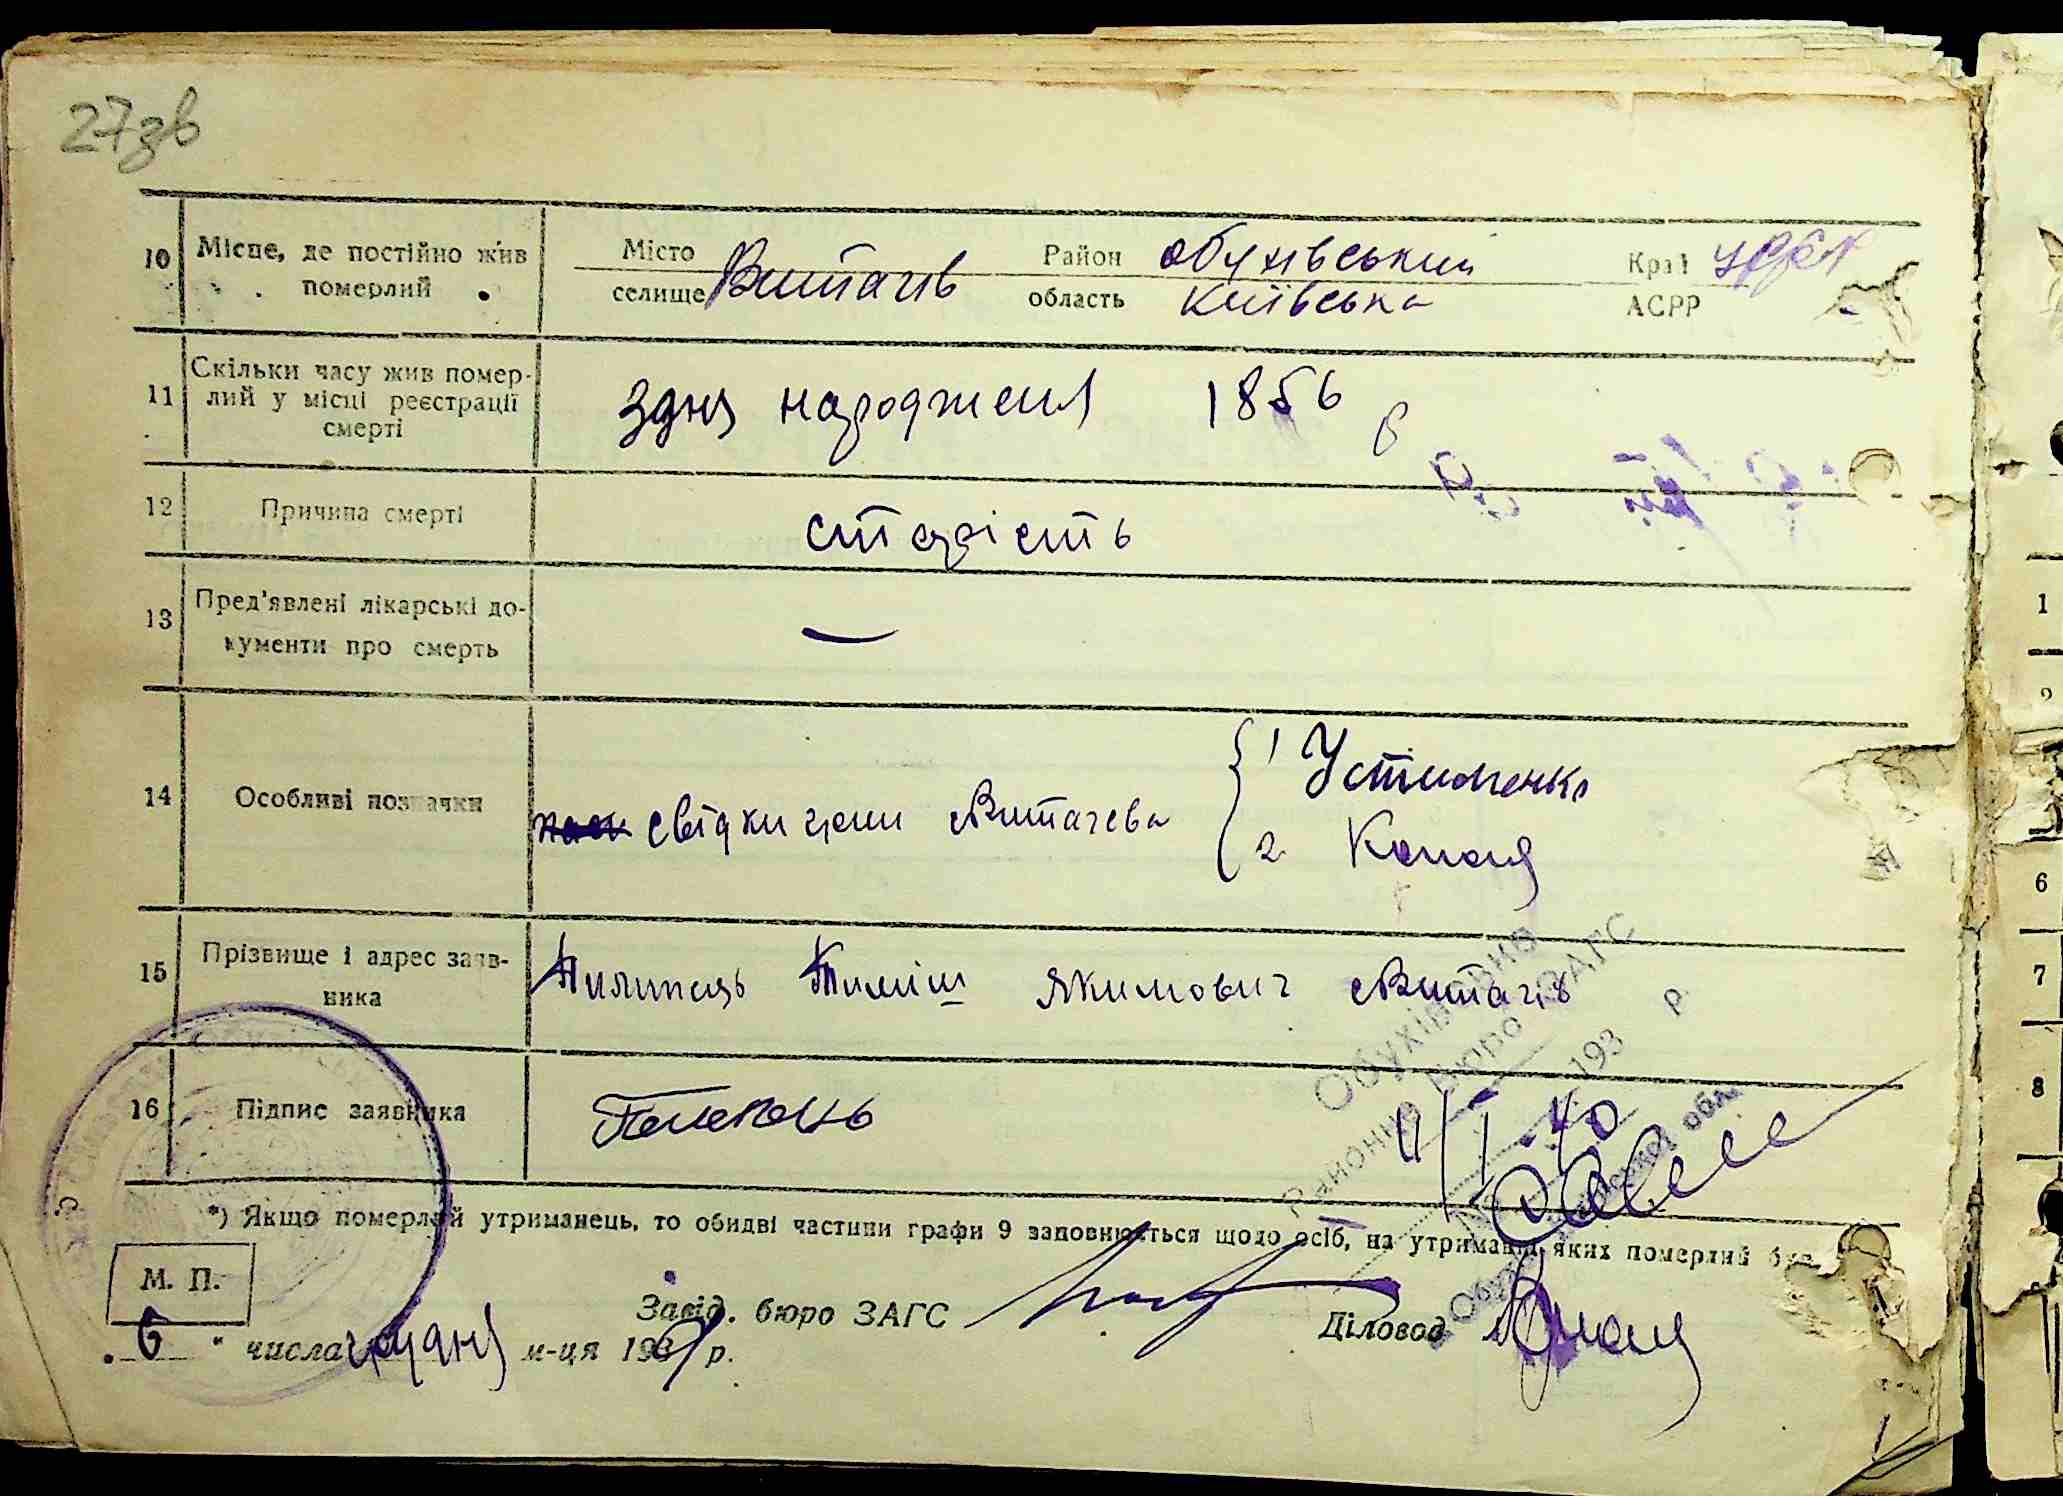 27зв
10 Місце, де постійно жив померлий Місто селище Витачів Район Обухівський область Київська Край АСРР УРСР
11 Скільки часу жив помер-
лий у місці реєстрації
смерті
з дня народження 1856 р
12 Причина смерті старість
13 Пред'явлені лікарські до-
кументи про смерть —
14 Особливі позначки
свідки Витачева { 1 Устименко
2 Копая
15 Прізвище і адрес заяв-
ника
Пилипець Тиміш Якимович Витачів
16 Підпис заявника Пилипець
Обухівське
Районне Бюро ЗАГС
193 р.
*) Якщо померлий утриманець, то обидві частини графи 9 заповнюється щодо осіб, на утриманні яких померлий був.
М. П.
Завід. бюро ЗАГС
Діловод
„6" числа грудня м-ця 1939 р.
1
2
6
7
8